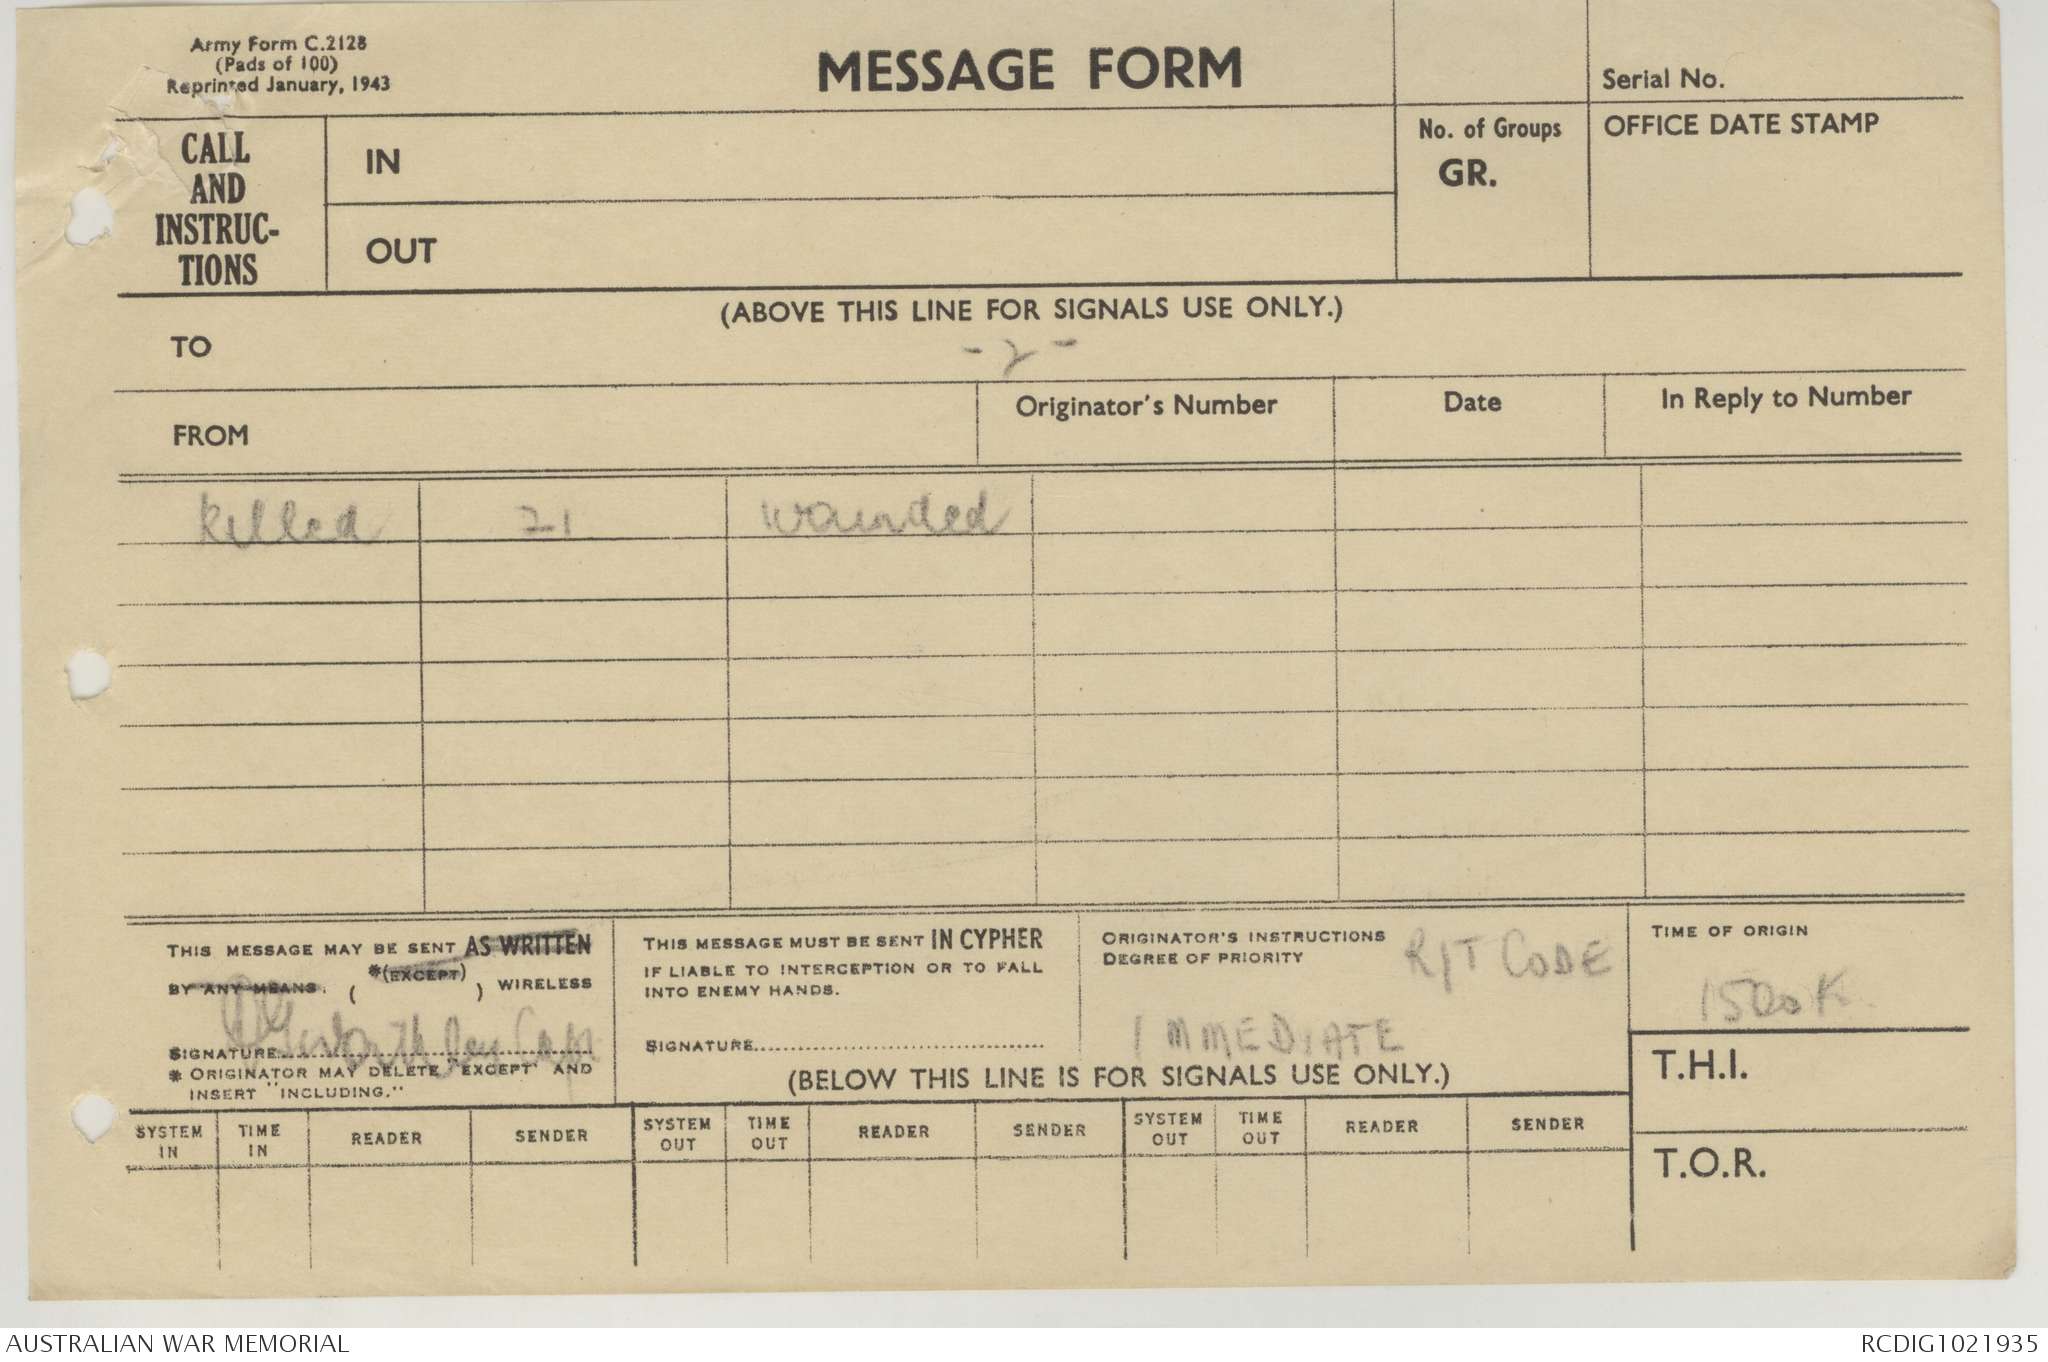 Army Form C.2128
(Pads of 100)
Reprinted January, 1943
MESSAGE FORM
Serial No.
CALL
AND
INSTRUC-
TIONS
IN
OUT
No. of Groups
GR.
OFFICE DATE STAMP
(ABOVE THIS LINE FOR SIGNALS USE ONLY.)
TO
- 2 -
FROM
Originator's Number
Date
In Reply to Number
killed 21 wounded
THIS MESSAGE MAY BE SENT AS WRITTEN
BY ANY MEANS.
*(EXCEPT)
( ) WIRELESS
SIGNATURE
Capt
* ORIGINATOR MAY DELETE "EXCEPT" AND
INSERT "INCLUDING."
THIS MESSAGE MUST BE SENT IN CYPHER
IF LIABLE TO INTERCEPTION OR TO FALL
INTO ENEMY HANDS.
SIGNATURE
ORIGINATOR'S INSTRUCTIONS
DEGREE OF PRIORITY
R/T CODE
IMMEDIATE
TIME OF ORIGIN
1500K
(BELOW THIS LINE IS FOR SIGNALS USE ONLY.)
T.H.I.
T.O.R.
SYSTEM IN
TIME IN
READER
SENDER
SYSTEM OUT
TIME OUT
READER
SENDER
SYSTEM OUT
TIME OUT
READER
SENDER
AUSTRALIAN WAR MEMORIAL
RCDIG1021935